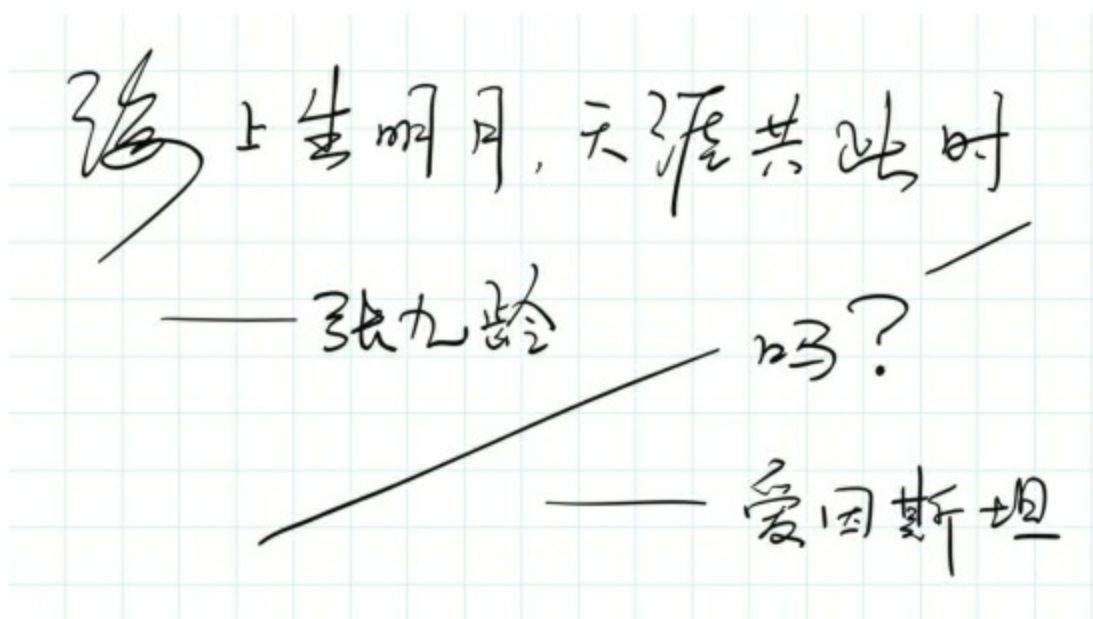 海上生明月，天涯共此时
——张九龄
吗？
——爱因斯坦